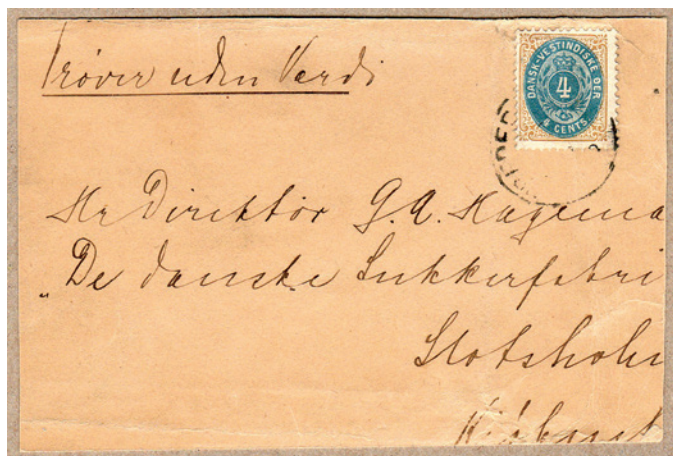 Prøver uden Værdi
DANSK-VESTINDISKE ØER
4
4 CENTS
Hr Direktør G. A. Hagema
De danske Sukkerfabri
Slotsholm